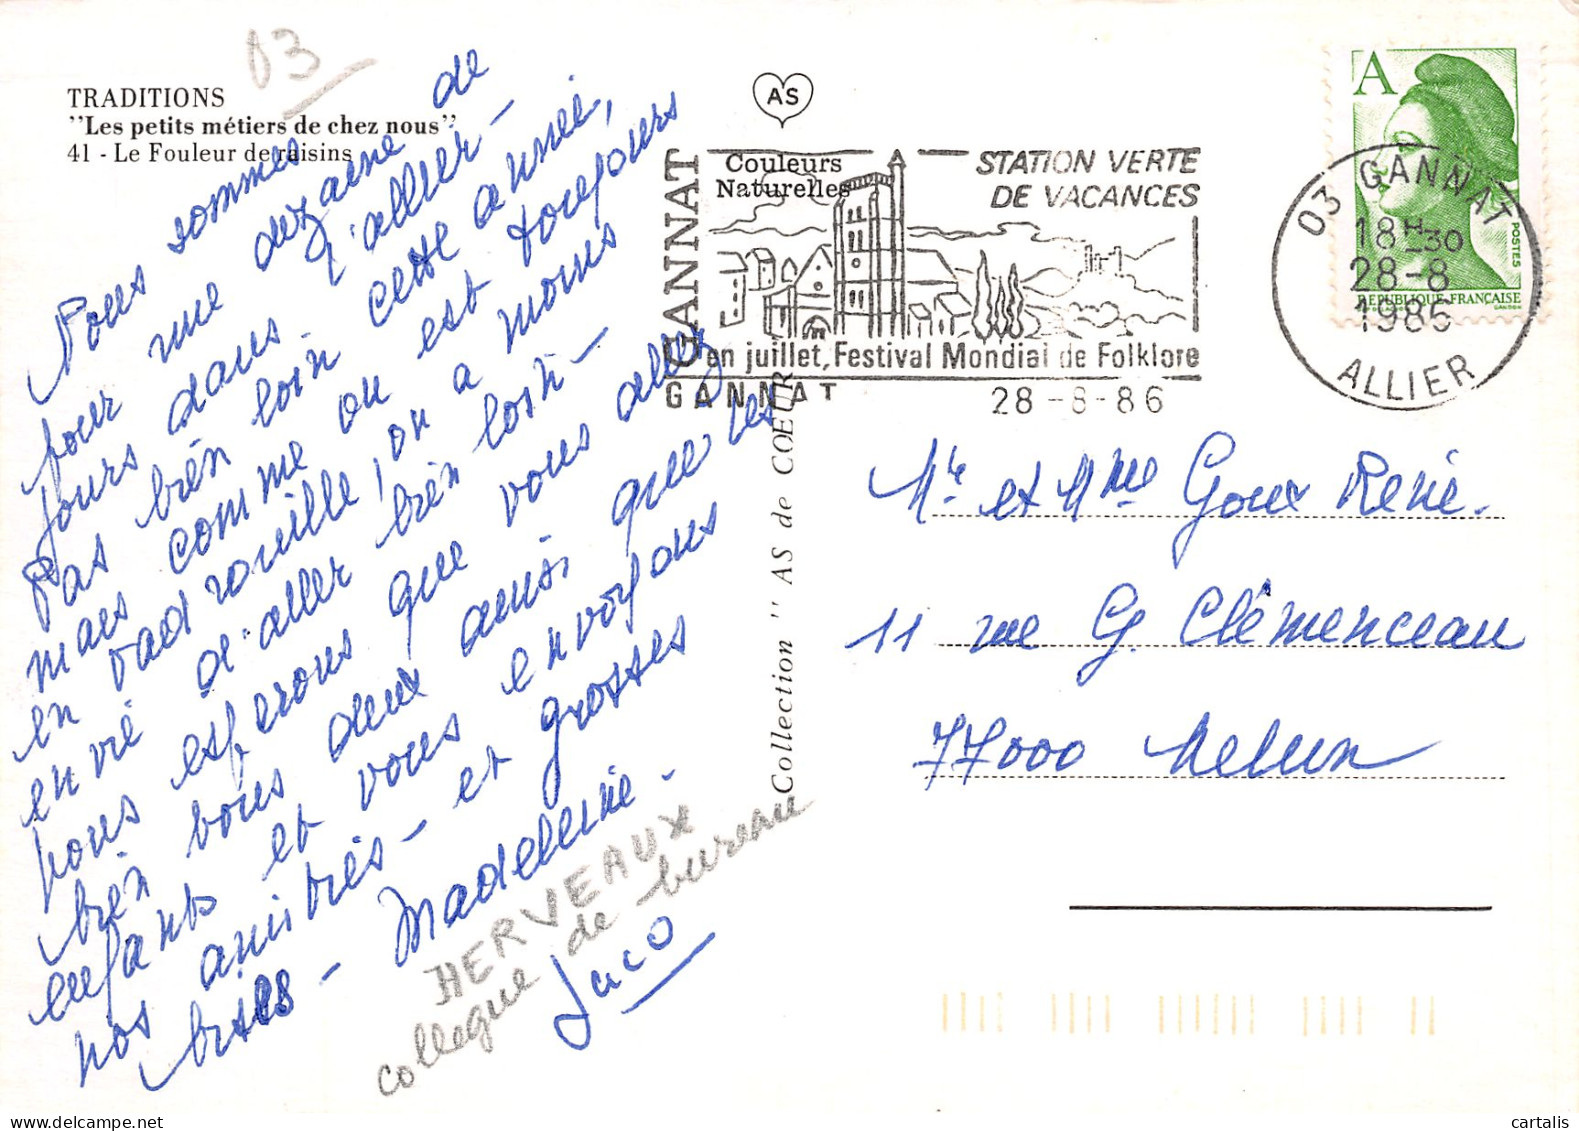 03
TRADITIONS
"Les petits métiers de chez nous"
41 - Le Fouleur de raisins
Nous sommes
pour une dizaine de
jours dans l'allier -
Pas bien loin cette année,
mais comme on est toujours
en vadrouille, on a moins
envie d'aller bien loin -
nous espérons que vous allez
bien tous deux ainsi que les
enfants et vous envoyons
nos amitiés - et grosses
bises - Madeleine -
HERVEAUX
collegue de bureau
AS
Couleurs
Naturelles
GANNAT
STATION VERTE
DE VACANCES
en juillet, Festival Mondial de Folklore
GANNAT 28-8-86
A
POSTES
REPUBLIQUE FRANÇAISE
GANDON
03 GANNAT
18H30
28-8
1986
ALLIER
Collection "AS de COEUR"
Mr et Mme Goux René.
11 rue G. Clémenceau
77000 Melun
cartalis
www.delcampe.net